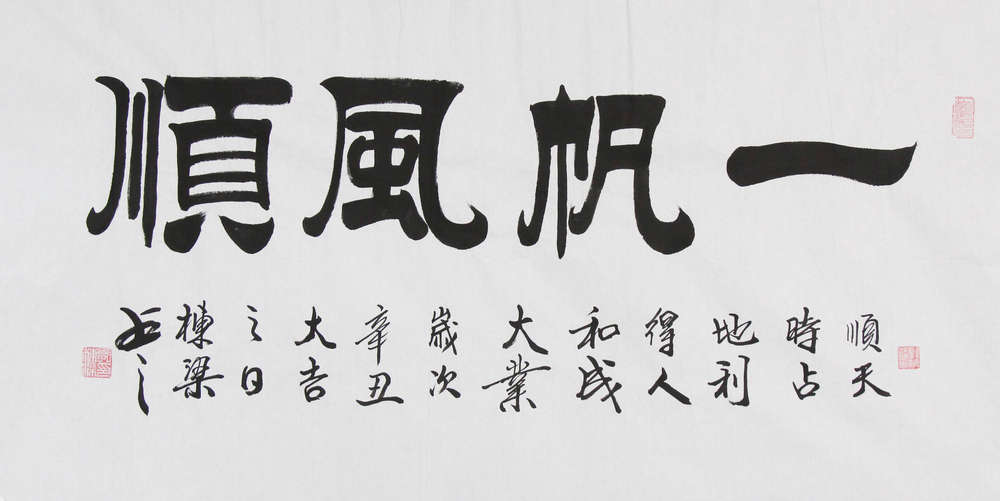 一帆風順
順天
時占
地利
得人
和成
大業
歲次
辛丑
大吉
之日
棟梁
之